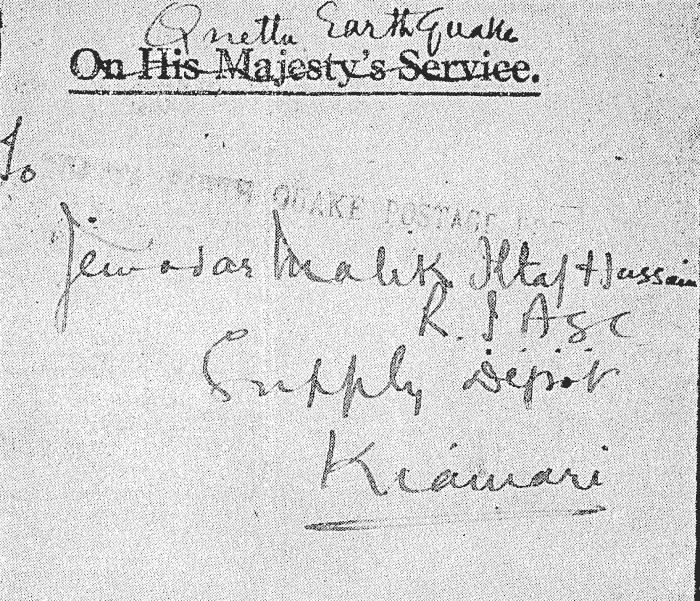 Quetta EarthQuake
On His Majesty's Service.
To
QUAKE POSTAGE
Jemadar Malik Iltaf Hussain
R. I A S C
Supply Depôt
Kiamari